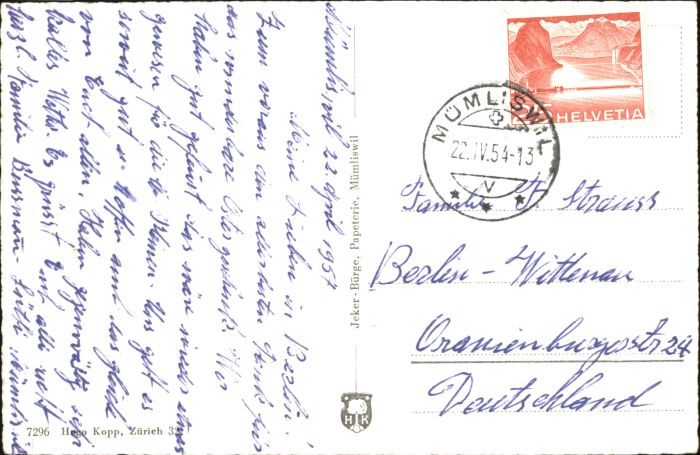 Mümliswil 22 april 1954
Meine Lieben in Berlin!
Zum voraus den allerbesten Dank für
das wunderbare Ostergeschenk. Wir
haben gut gelacht das wäre wieder etwas
gewesen für die Mamme. Uns geht es
soweit gut & hoffen auch das gleiche
von Euch allen. Haben gegenwärtig ein
kaltes Wetter. Es grüsst Euch alle recht
herzl. Familie Mümliswil
HELVETIA
MÜMLISWIL
22.IV.54-13
V
Familie A. Strauss
Berlin-Wittenau
Oranienburgerstr 24
Deutschland
Jeker-Bürge, Papeterie, Mümliswil
H K
7296 Hugo Kopp, Zürich 32